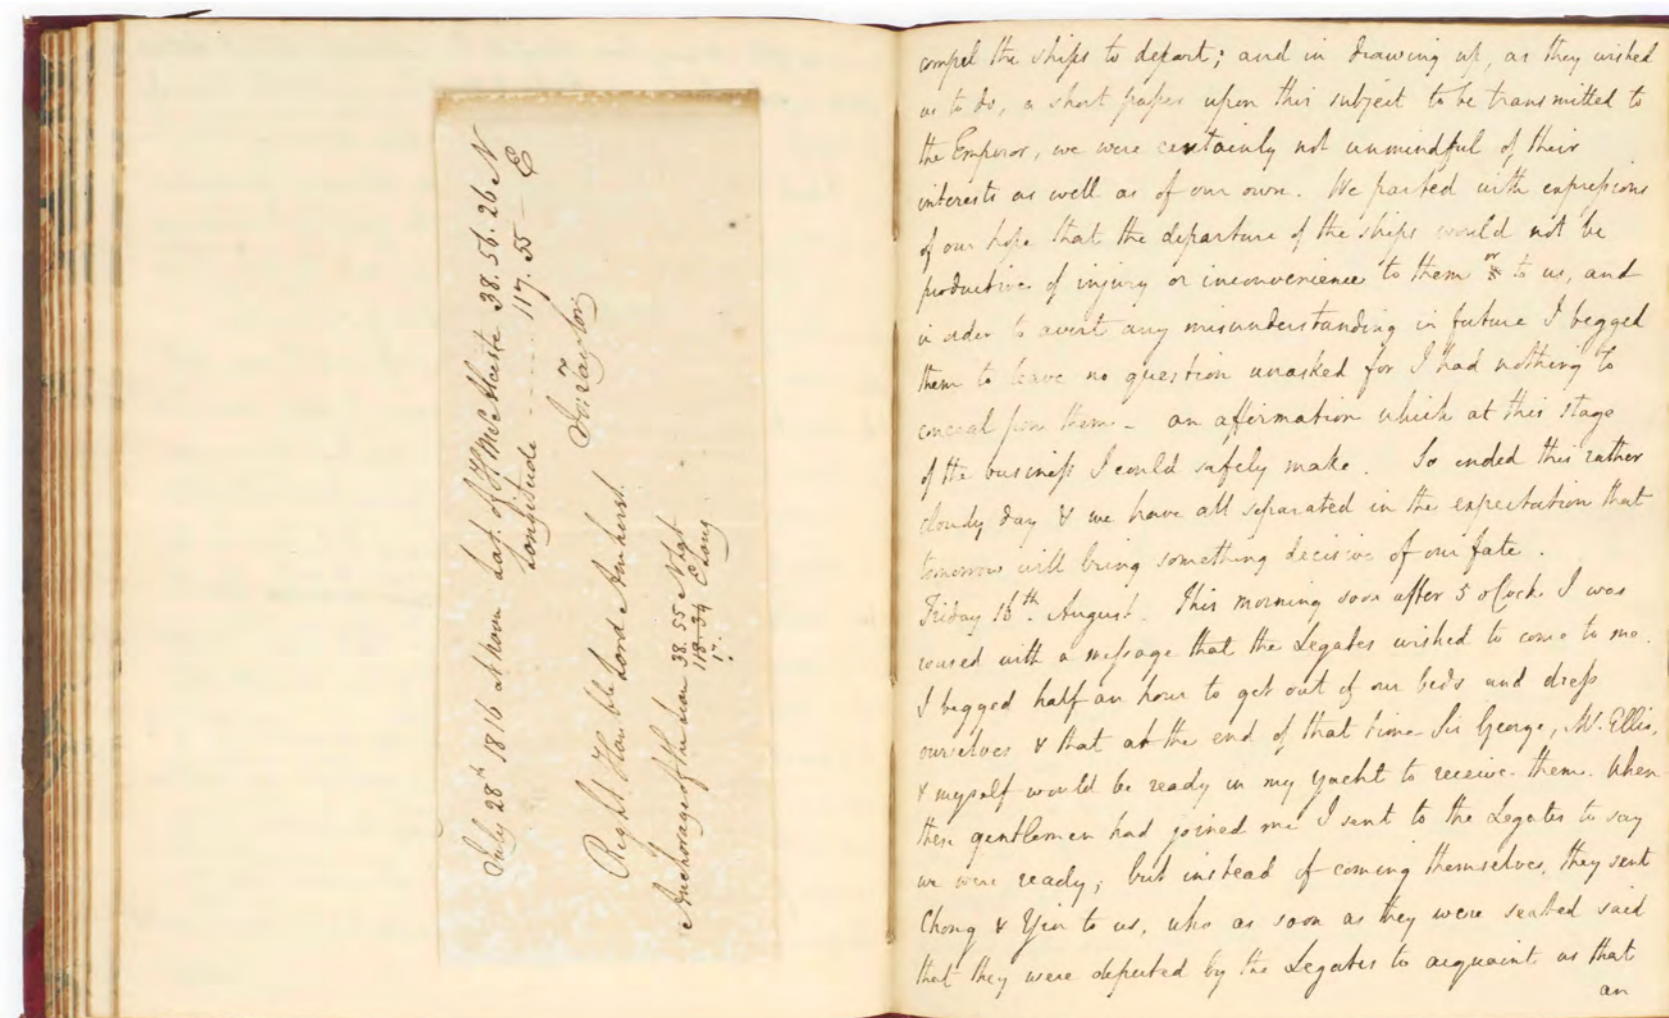 July 28th 1816 at Noon Lat. of HMS Alceste 38. 56. 26 N
Longitude - - - - 117. 55 — E
Jos: Taylor
Right Honble Lord Amherst.
Anchorage of the Lion 38. 55 N Lat
118. 34 E Long
17.
compel the ships to depart; and in drawing up, as they wished
us to do, a short paper upon this subject to be transmitted to
the Emperor, we were certainly not unmindful of their
interests as well as of our own. We parted with expressions
of our hope that the departure of the ships would not be
productive of injury or inconvenience to them or to us, and
in order to avert any misunderstanding in future I begged
them to leave no question unasked for I had nothing to
conceal from them – an affirmation which at this stage
of the business I could safely make. So ended this rather
cloudy day & we have all separated in the expectation that
tomorrow will bring something decisive of our fate.
Friday 16th. August. This morning soon after 5 oClock I was
roused with a message that the Legates wished to come to me.
I begged half an hour to get out of our beds and dress
ourselves & that at the end of that time Sir George, Mr. Ellis,
& myself would be ready in my yacht to receive them. When
these gentlemen had joined me I sent to the Legates to say
we were ready; but instead of coming themselves, they sent
Chang & Yin to us, who as soon as they were seated said
that they were deputed by the Legates to acquaint us that
an